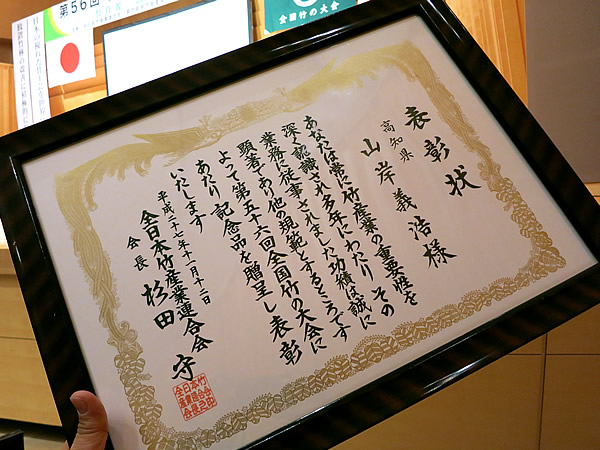 表彰状
高知県
山岸義浩様
あなたは常に竹産業の重要性を
深く認識され多年にわたり、その
業務に従事されました功績は誠に
顕著であり他の規範とするところです
よって第五十六回全国竹の大会に
あたり記念品を贈呈し表彰
いたします
平成二十七年十一月十二日
全日本竹産業連合会
会長 杉田 守
第56回
全国竹の大会